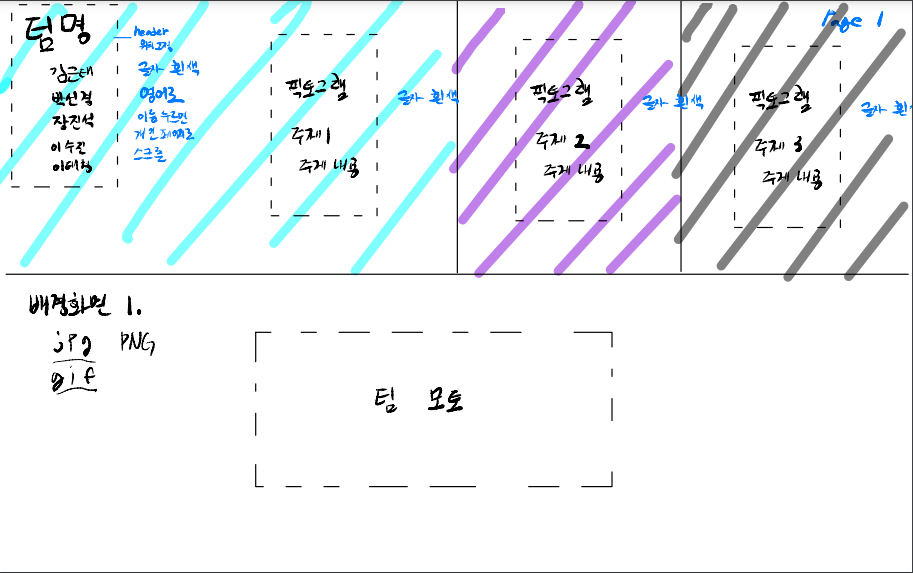 Page 1
팀명
김근태
박신격
장진석
이수진
이태형
header
위치고정
글자 흰색
영어로
이름 누르면
개인 페이지로
스크롤
픽토그램
주제 1
주제 내용
글자 흰색
픽토그램
주제 2
주제 내용
글자 흰색
픽토그램
주제 3
주제 내용
글자 흰
배경화면 1.
jpg PNG
gif
팀 모토